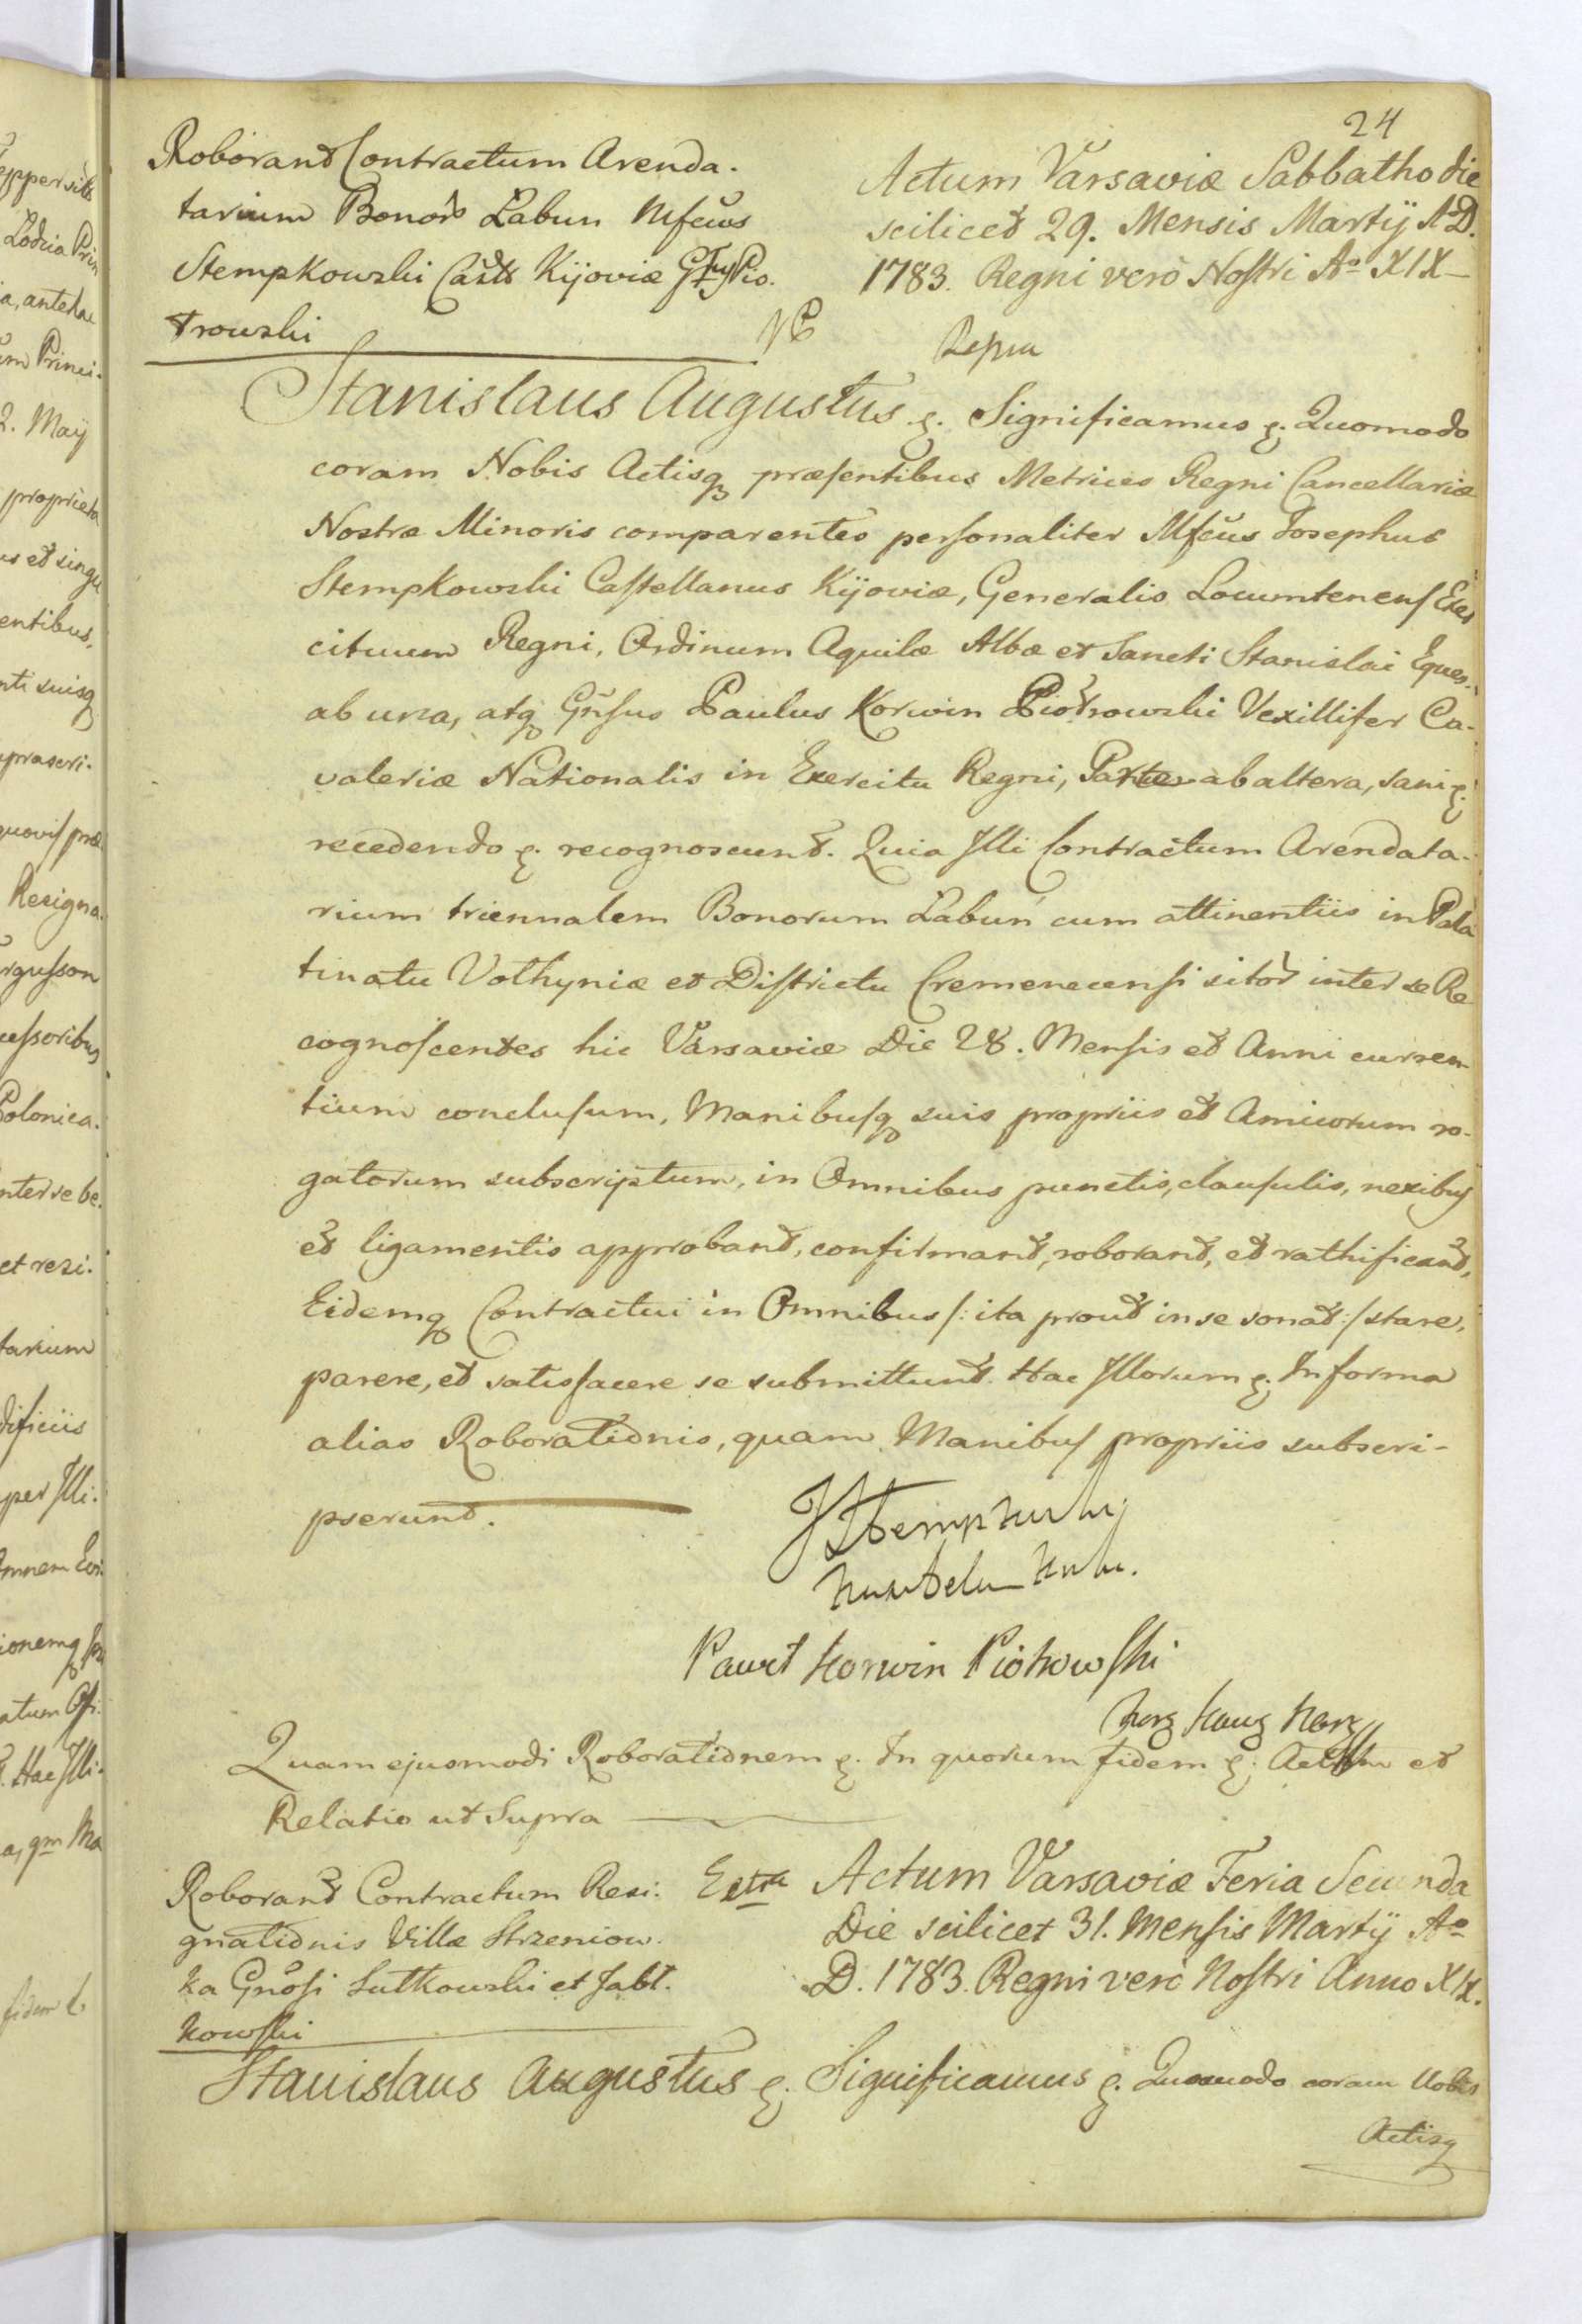 24
Roborant Contractum Arenda.
tarium Bonor Łabun Mfcus
Stempkowski Castts Kijoviæ G Pio.
trowski
Actum Varsaviæ Sabbatho die
scilicet 29. Mensis Martij A D.
1783. Regni vero Nostri Ao XIX
Stanislaus Augustus &. Significamus &. Quomodo
coram Nobis Actisq præsentibus Metrices Regni Cancellariæ
Nostræ Minoris comparentes personaliter Mfcus Josephus
Stempkowski Castellanus Kijoviæ, Generalis Locumtenens Exer
cituum Regni, Ordinum Aquilæ Albæ et Sancti Stanislai Eques.
ab una, atq Gnsus Paulus Korwin Piotrowski Vexillifer Ca-
valeriæ Nationalis in Exercitu Regni, Partes ab altera, sani &.
recedendo &. recognoscunt. Quia Illi Contractum Arendata-
rium triennalem Bonorum Łabuń cum attinentiis in Pala
tinatu Volhyniæ et Districtu Cremenecensi sitor inter se Re
cognoscentes hic Varsaviæ Die 28. Mensis et Anni curren
tium conclusum, Manibusq suis propriis et Amicorum ro-
gatorum subscriptum, in Omnibus punctis, clausulis, nexibus
et ligamentis approbant, confirmant, roborant, et rathificant,
Eidemq Contractui in Omnibus /: ita prout in se sonat :/ stare,
parere, et satisfacere se submittunt. Hac Illorum &. In forma
alias Roborationis, quam Manibus propriis subscri-
pserunt.
JStempkowski
Paweł Korwin Piotrowski
Quam ejusmodi Roborationem &. In quorum fidem &. Actum et
Relatio ut Supra
Roborant Contractum Resi:
gnationis Villæ Strzeniow.
ka Gnosi Sutkowski et Jabł.
kowski
Actum Varsaviæ Feria Secunda
Die scilicet 31. Mensis Martij Ao
D. 1783. Regni vero Nostri Anno XIX.
Stanislaus Augustus &. Significamus &. Quomodo coram Nobis
Actisq